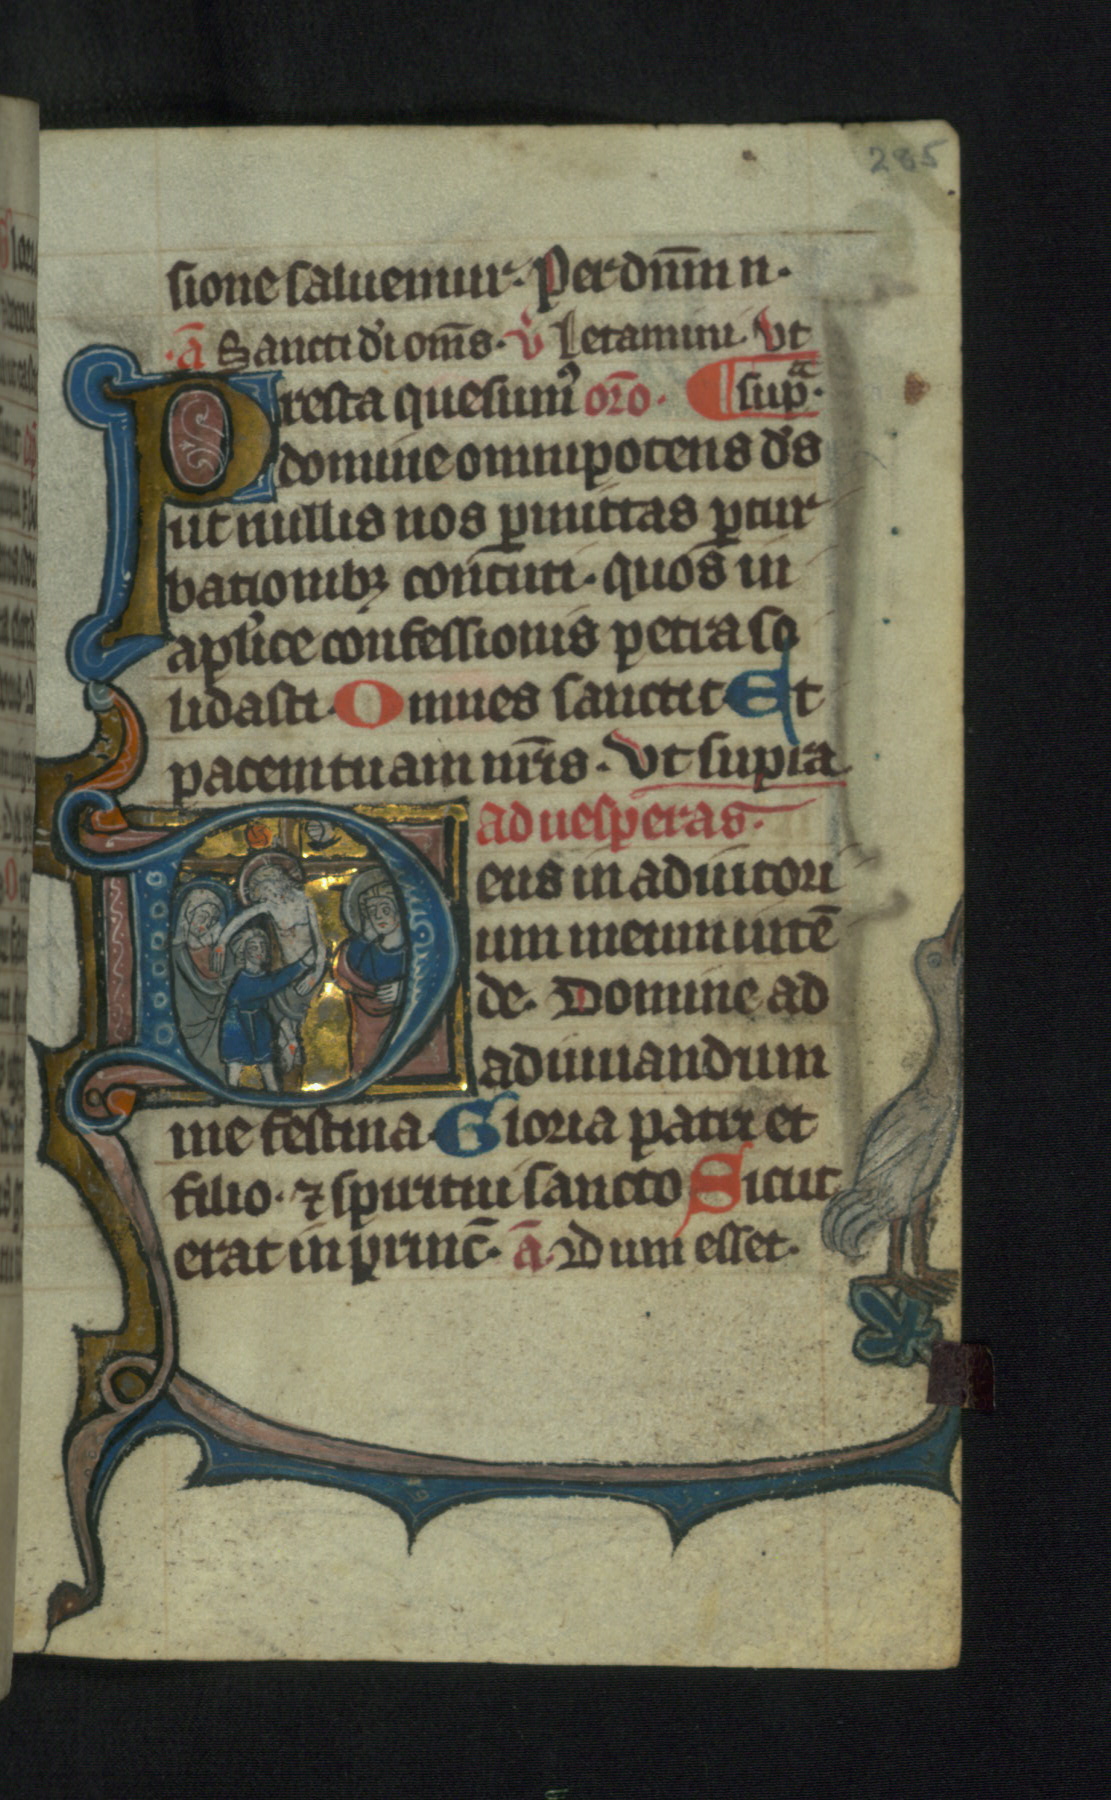 285
sione saluemur. Per dn̄m n.
·ā Sancti dı̉ om̄s. v̉ Letamini. Vt
Presta quesumꝰ or̄o. ¶ sup̄ᵃ.
domine omnipotens d̉s
ut nullis nos ꝑmittas ꝑtur
bationibꝫ concuti. quos in
apl̉ice confessionis petra so
lidasti. Omnes sancti t Et
pacem tuam nr̄is. Vt supra
ad uesperas.
Deus in adiutori
um meum intē
de. Domine ad
adiuuandum
me festina. Gloria patri et
filio. ⁊ spiritui sancto Sicut
erat in princ̄. ā. Dum esset.